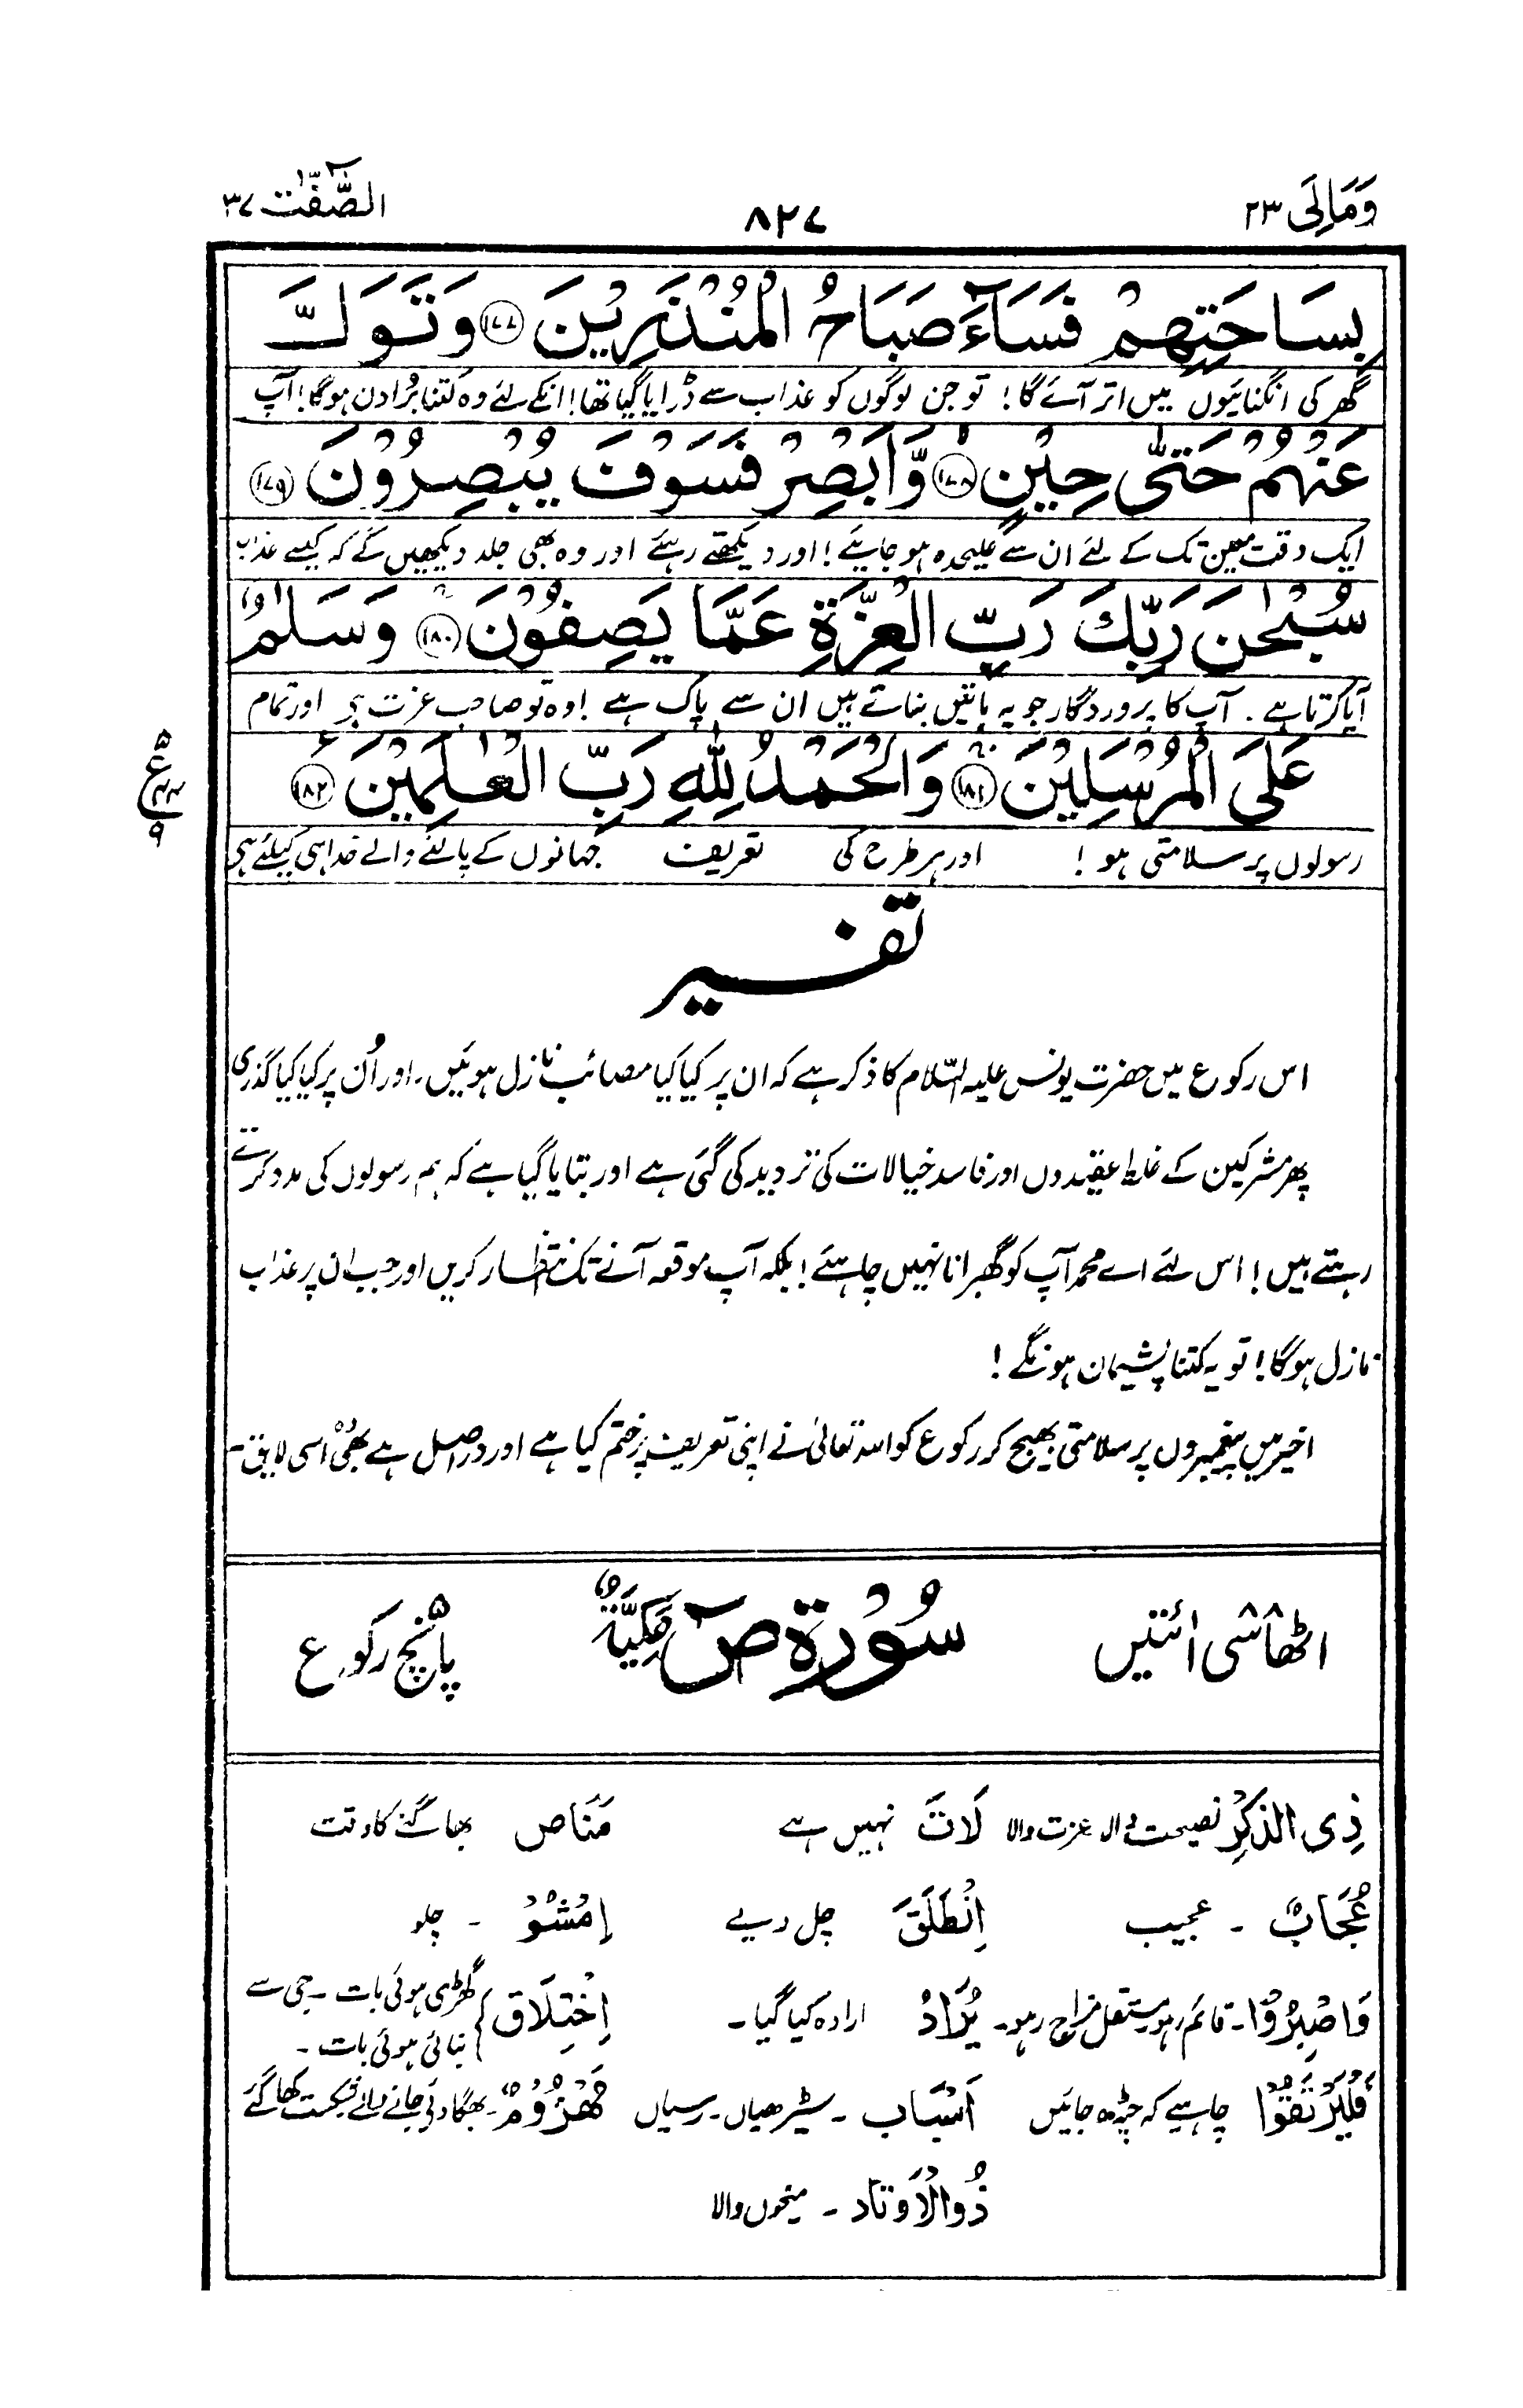 وَمَالِیَ ۲۳
۸۲۷
الصّٰٓفّٰت ۳۷
بِسَاحَتِهِمْ فَسَآءَ صَبَاحُ الْمُنْذَرِيْنَ ۱۷۷ وَتَوَلَّ
گھر کی انگنائیوں میں اتر آئے گا! تو جن لوگوں کو عذاب سے ڈرایا گیا تھا! انکے لئے وہ کتنا بُرا دن ہوگا! آپ
عَنْهُمْ حَتّٰى حِيْنٍ ۱۷۸ وَّاَبْصِرْ فَسَوْفَ يُبْصِرُوْنَ ۱۷۹
ایک وقت معین تک کے لئے ان سے علیحدہ ہو جایئے! اور دیکھتے رہئے اور وہ بھی جلد دیکھیں گے کہ کیسے عذاب
سُبْحٰنَ رَبِّكَ رَبِّ الْعِزَّةِ عَمَّا يَصِفُوْنَ ۱۸۰ وَسَلٰمٌ
آیا کرتا ہے۔ آپ کا پروردگار جو یہ باتیں بناتے ہیں ان سے پاک ہے! وہ تو صاحب عزت ہے اور تمام
عَلَى الْمُرْسَلِيْنَ ۱۸۱ وَالْحَمْدُ لِلّٰهِ رَبِّ الْعٰلَمِيْنَ ۱۸۲
ع ۵ ۹
رسولوں پر سلامتی ہو! اور ہر طرح کی تعریف جہانوں کے پالنے والے خدا ہی کیلئے ہے
تفسیر
اس رکوع میں حضرت یونس علیہ السّلام کا ذکر ہے کہ ان پر کیا کیا مصائب نازل ہوئیں۔ اور اُن پر کیا کیا گذری
پھر مشرکین کے غلط عقیدوں اور فاسد خیالات کی تردید کی گئی ہے اور بتایا گیا ہے کہ ہم رسولوں کی مدد کرتے
رہتے ہیں! اس لئے اے محمد آپ کو گھبرانا نہیں چاہئے! بلکہ آپ موقعہ آنے تک انتظار کریں اور جب ان پر عذاب
نازل ہوگا! تو یہ کتنا پشیمان ہونگے!
اخیر میں پیغمبروں پر سلامتی بھیج کر رکوع کو اللہ تعالیٰ نے اپنی تعریف پر ختم کیا ہے اور دراصل ہے بھی وہ اسی لایق۔
اٹھاسی ۸۸ ائتیں
سُوْرَةُ صٓ مَكِّيَّةٌ
پانچ ۵ رکوع
ذِی الذِّكْرِ نصیحت والا عزت والا لَاتَ نہیں ہے مَنَاص بھاگنے کا وقت
عُجَابٌ ۔ عجیب اِنْطَلَقَ چل دیے اِمْشُوْ ۔ چلو
وَاصْبِرُوْا۔ قائم رہو مستقل مزاج رہو۔ يُرَادُ ارادہ کیا گیا۔ اِخْتِلَاق گھڑی ہوئی بات۔ جی سے
بنائی ہوئی بات۔
فَلْيَرْتَقُوْا چاہیے کہ چڑھ جائیں اَسْبَاب ۔ سیڑھیاں۔ رسیاں مَهْزُوْمٌ۔ بھگا دئیے جانے والے شکست کھا گئے
ذُوالْاَوْتَاد ۔ میخوں والا